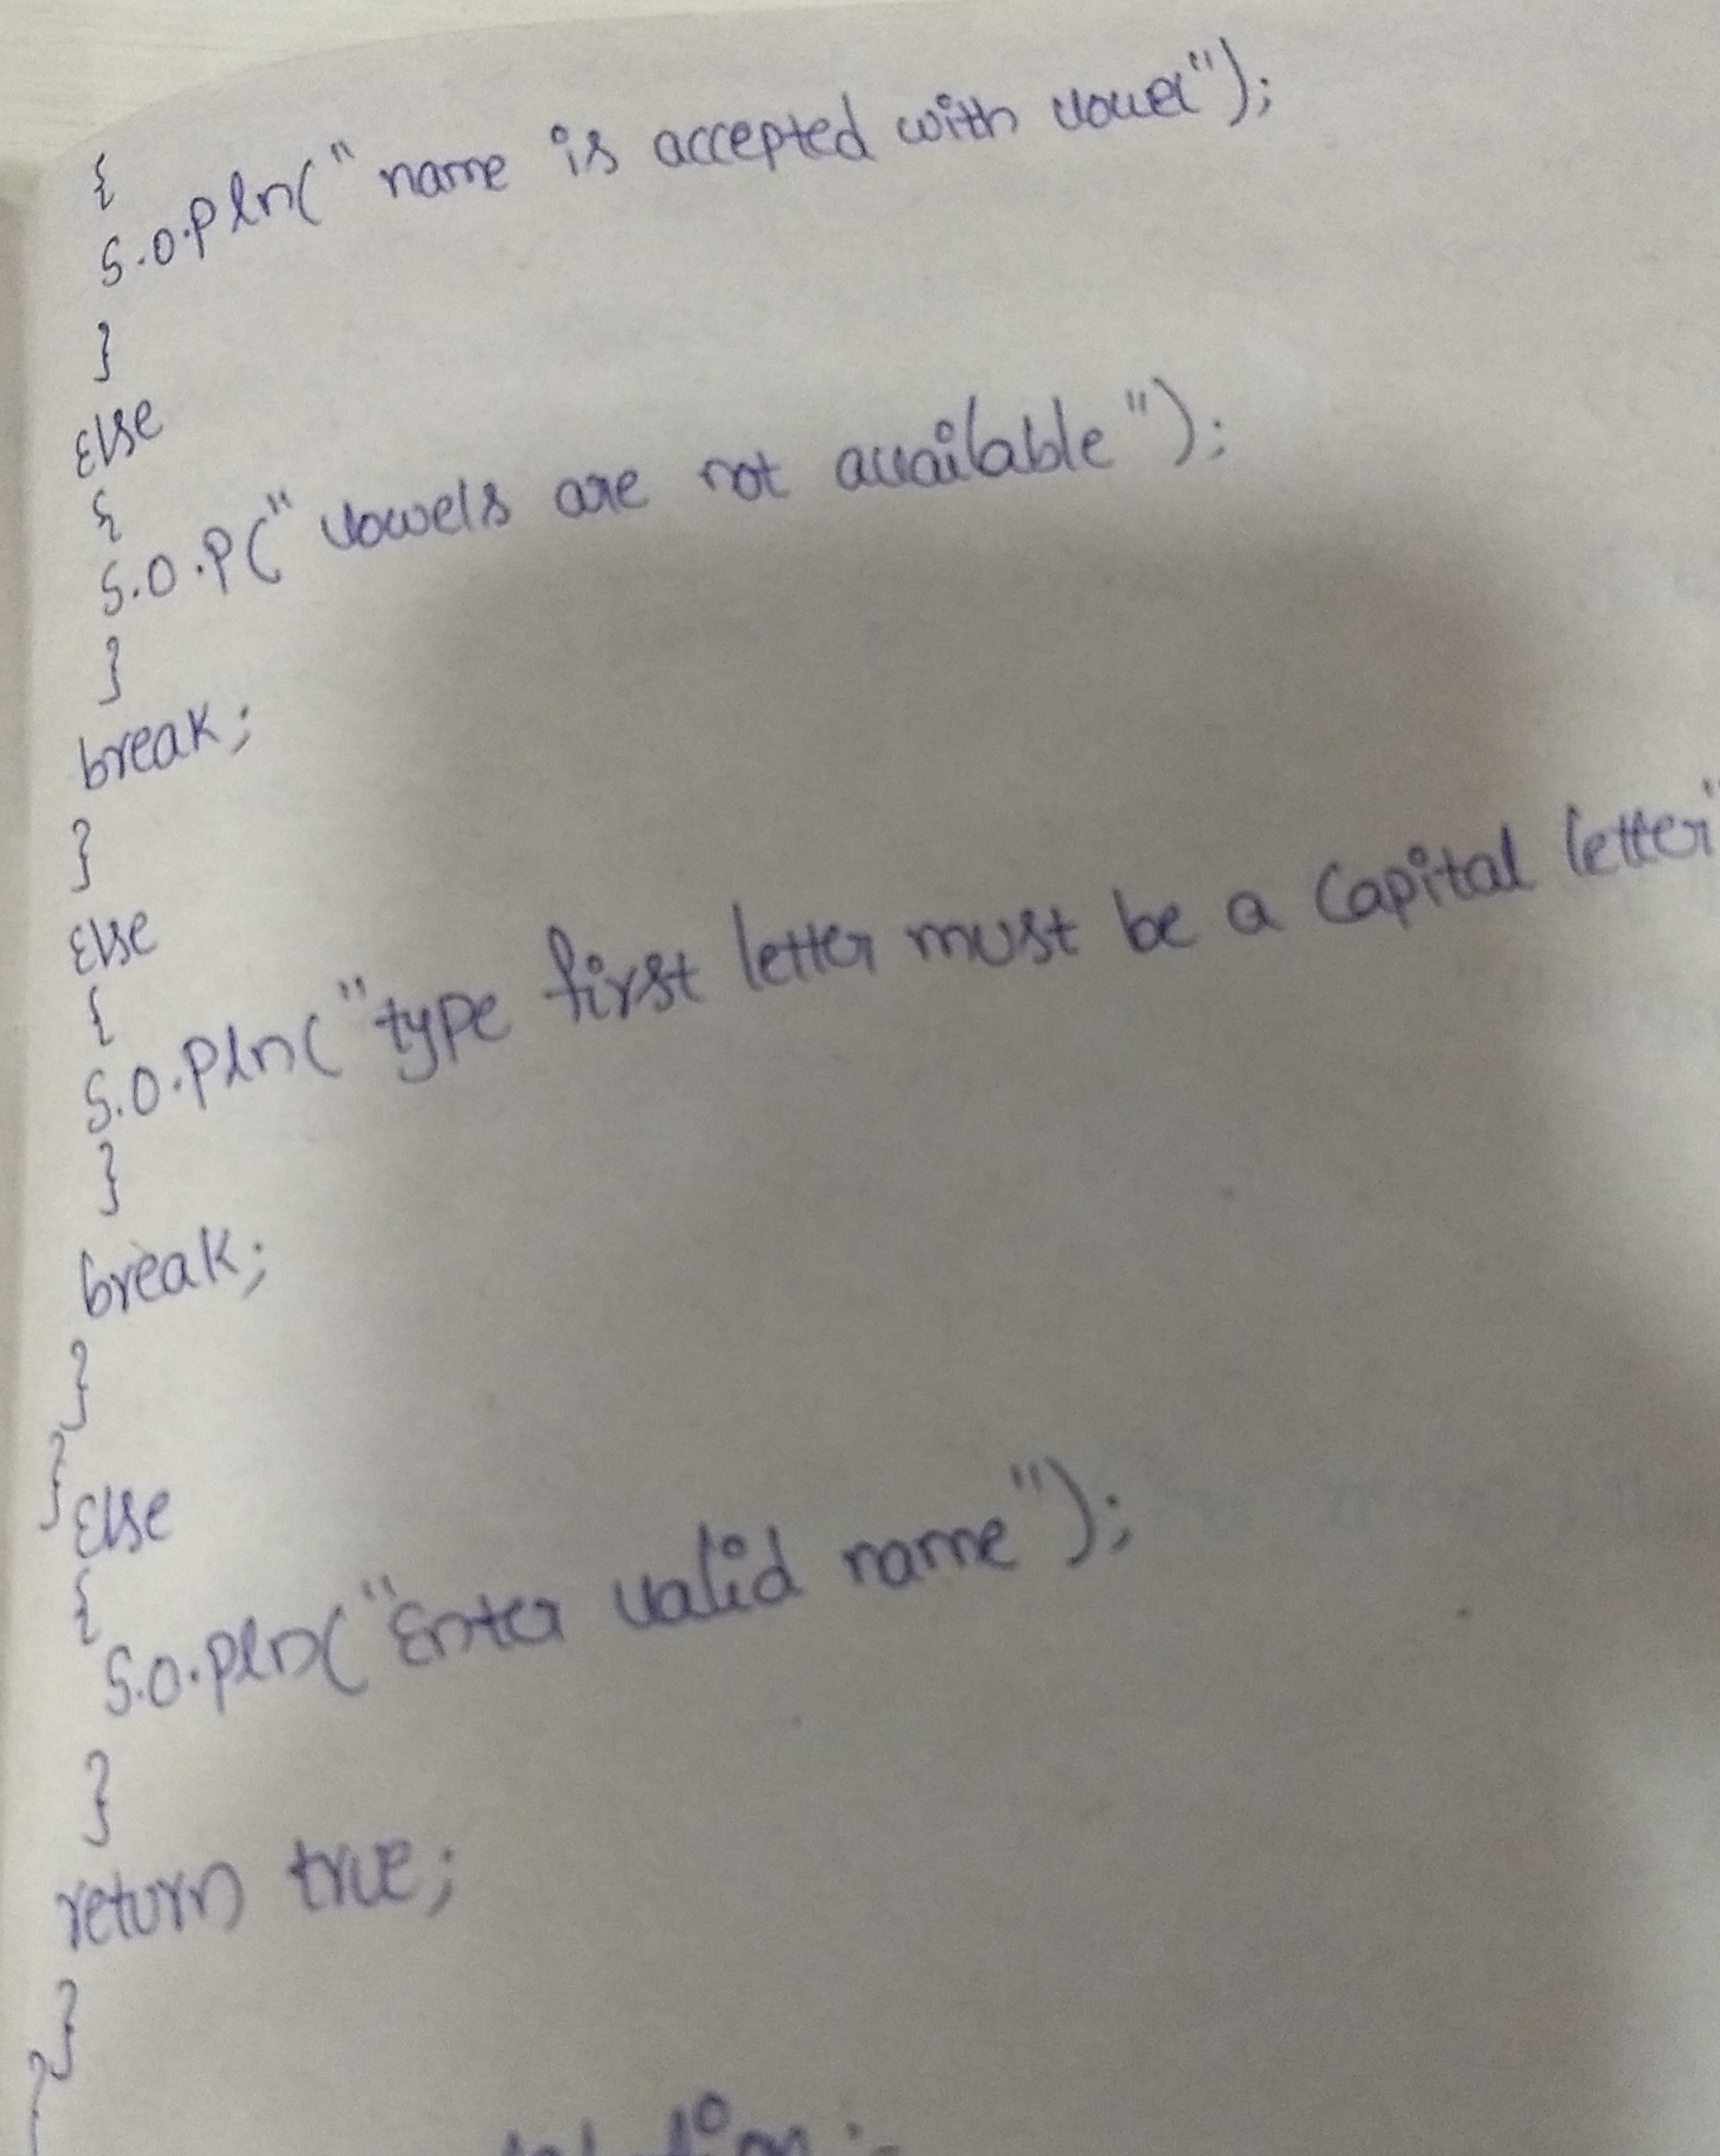 {
S.O.Pln(" name is accepted with vowel");
}
else
{
S.O.P(" vowels are not available");
}
break;
}
else
{
S.O.Pln("type first letter must be a Capital letter"
}
break;
}
}
else
{
S.O.Pln("Enter valid name");
}
return true;
}
}